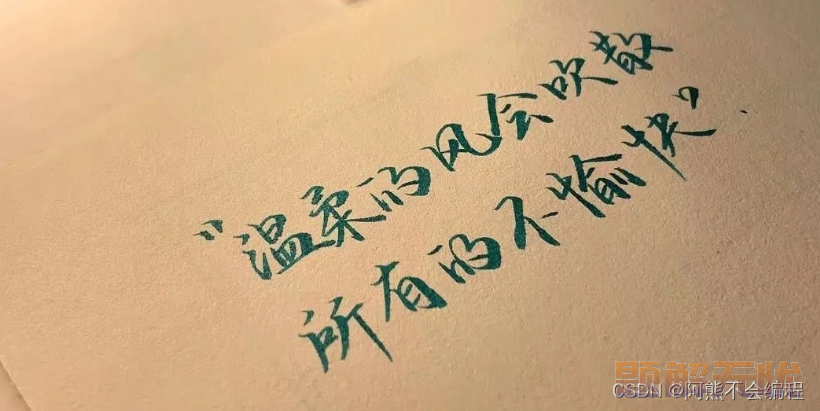 “温柔的风会吹散
所有的不愉快”
题解无忧
CSDN @阿熊不会编程